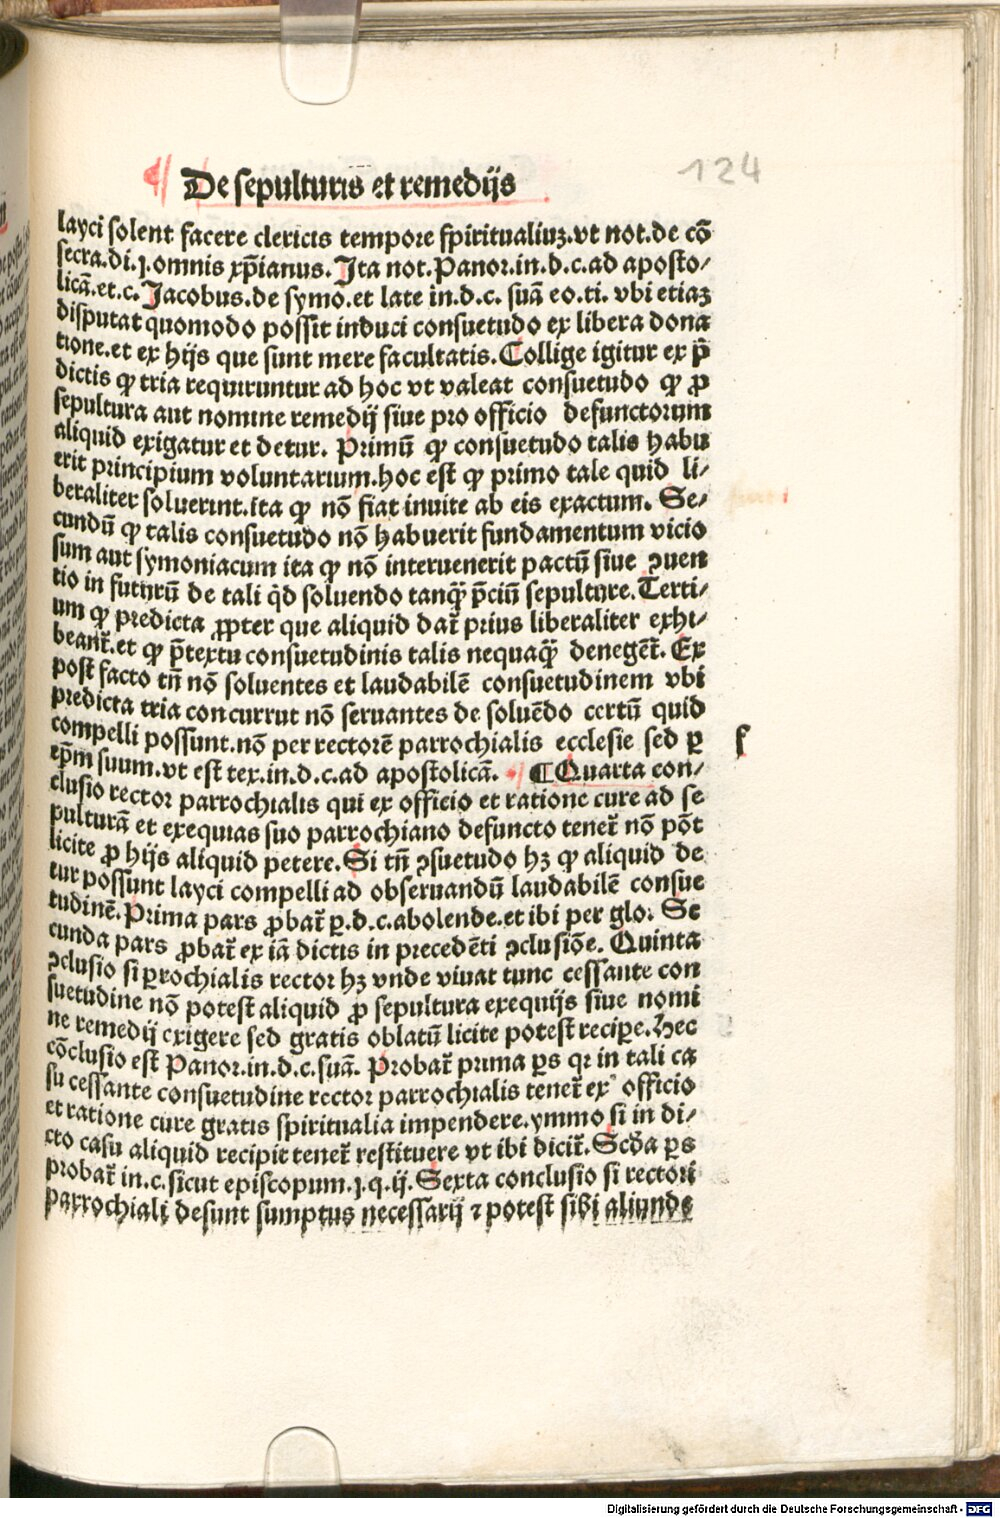 124
De sepulturis et remedijs
layci solent facere clericis tempore spiritualiuʒ.vt not.de cō
secra.di.j.omnis xp̄ianus. Ita not.Panor.in.d.c.ad aposto⸗
licā.et.c.Jacobus.de symo.et late in.d.c. suā eo.ti. vbi etiaʒ
disputat quomodo possit induci consuetudo ex libera dona
tione.et ex hijs que sunt mere facultatis.Collige igitur ex p̄
dictis ꝙ tria requiruntur ad hoc vt valeat consuetudo ꝙ ꝓ
sepultura aut nomine remedij siue pro officio defunctorum
aliquid exigatur et detur. Primū ꝙ consuetudo talis habu
erit principium voluntarium.hoc est ꝙ primo tale quid li⸗
beraliter soluerint.ita ꝙ nō fiat inuite ab eis exactum. Se⸗
cundū ꝙ talis consuetudo nō habuerit fundamentum vicio
sum aut symoniacum ita ꝙ nō interuenerit pactū siue ꝯuen
tio in futurū de tali qd̄ soluendo tanqꝫ̄ p̄ciū sepulture.Terti⸗
um ꝙ predicta ꝓpter que aliquid dat̄ prius liberaliter exhi⸗
beant̄.et ꝙ p̄textu consuetudinis talis nequaqꝫ̄ deneget̄. Ex
post facto tn̄ nō soluentes et laudabilē consuetudinem vbi
predicta tria concurrut nō seruantes de soluēdo certū quid
compelli possunt.nō per rectorē parrochialis ecclesie sed ꝑ
ep̄m suum.vt est tex.in.d.c.ad apostolicā. ¶Quarta con⸗
f
clusio rector parrochialis qui ex officio et ratione cure ad se
pulturā et exequias suo parrochiano defuncto tenet̄ nō pōt
licite ꝓ hijs aliquid petere.Si tn̄ ꝯsuetudo hʒ ꝙ aliquid de
tur possunt layci compelli ad obseruandū laudabilē consue
tudinē.Prima pars ꝓbat̄ ꝑ.d.c.abolende.et ibi per glo. Se
cunda pars ꝓbat̄ ex iā dictis in precedēti ꝯclusiōe. Quinta
ꝯclusio si ꝑrochialis rector hʒ vnde viuat tunc cessante con
suetudine nō potest aliquid ꝓ sepultura exequijs siue nomi
ne remedij exigere sed gratis oblatū licite potest recipe.Hec
cōclusio est Panor.in.d.c.suā. Probat̄ prima ꝑs qꝛ in tali ca
su cessante consuetudine rector parrochialis tenet̄ ex officio
et ratione cure gratis spiritualia impendere.ymmo si in di⸗
cto casu aliquid recipit tenet̄ restituere vt ibi dicit̄.Scd̄a ꝑs
probat̄ in.c.sicut episcopum.j.q.ij.Sexta conclusio si rectori
parrochiali desunt sumptus necessarij ⁊ potest sibi aliunde
Digitalisierung gefördert durch die Deutsche Forschungsgemeinschaft - DFG